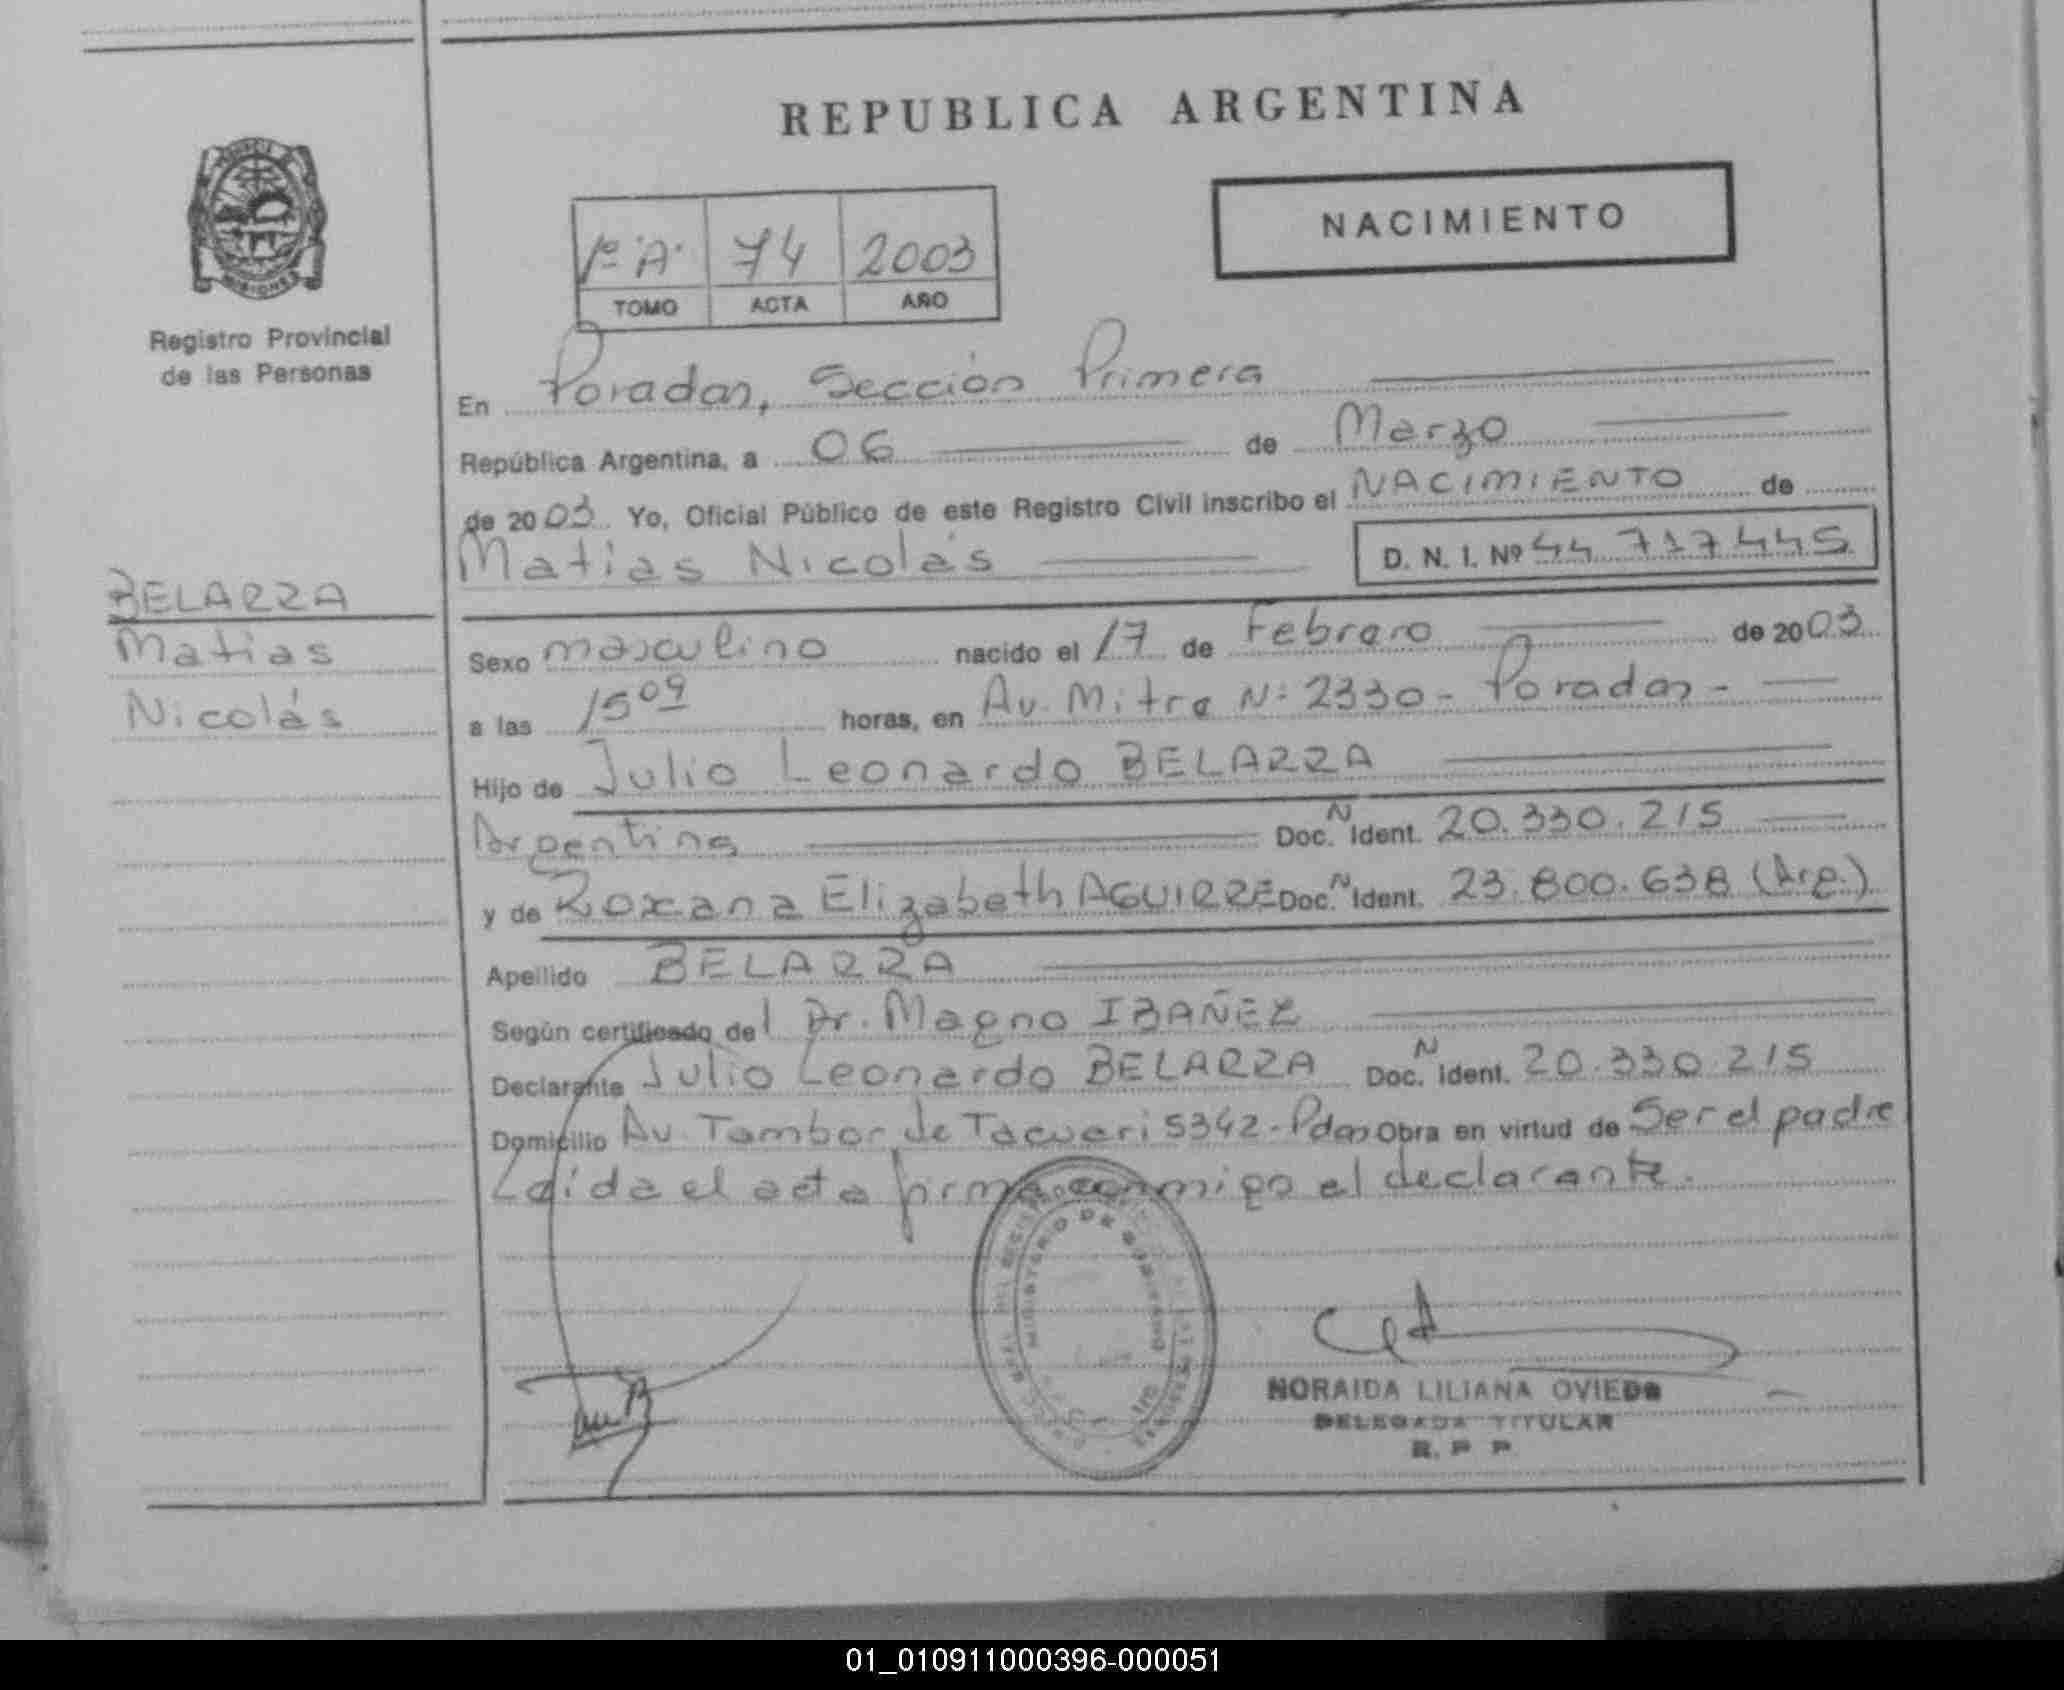 REPUBLICA ARGENTINA
NACIMIENTO
1º "A" 74 2003
TOMO ACTA AÑO
MISIONES
Registro Provincial
de las Personas
BELARRA
Matías
Nicolás
En Posadas, Sección Primera
República Argentina, a 06 de Marzo
de 2003 Yo, Oficial Público de este Registro Civil inscribo el NACIMIENTO de
Matías Nicolás D. N. I. Nº 44 717445
Sexo masculino nacido el 17 de Febrero de 2003
a las 15 09 horas, en Av. Mitre Nº 2330 - Posadas -
Hijo de Julio Leonardo BELARRA
Argentina Doc. N Ident. 20.330.215
y de Roxana Elizabeth AGUIRRE Doc. N Ident. 23.800.638 (Arg.)
Apellido BELARRA
Según certificado del Dr. Magno IBAÑEZ
Declarante Julio Leonardo BELARRA Doc. N Ident. 20.330.215
Domicilio Av. Tambor de Tacuari 5342 - Pdas Obra en virtud de Ser el padre
Leída el acta firma conmigo el declarante.
MINISTERIO DE GOBIERNO
NORAIDA LILIANA OVIEDO
DELEGADA TITULAR
R. P P.
01_010911000396-000051